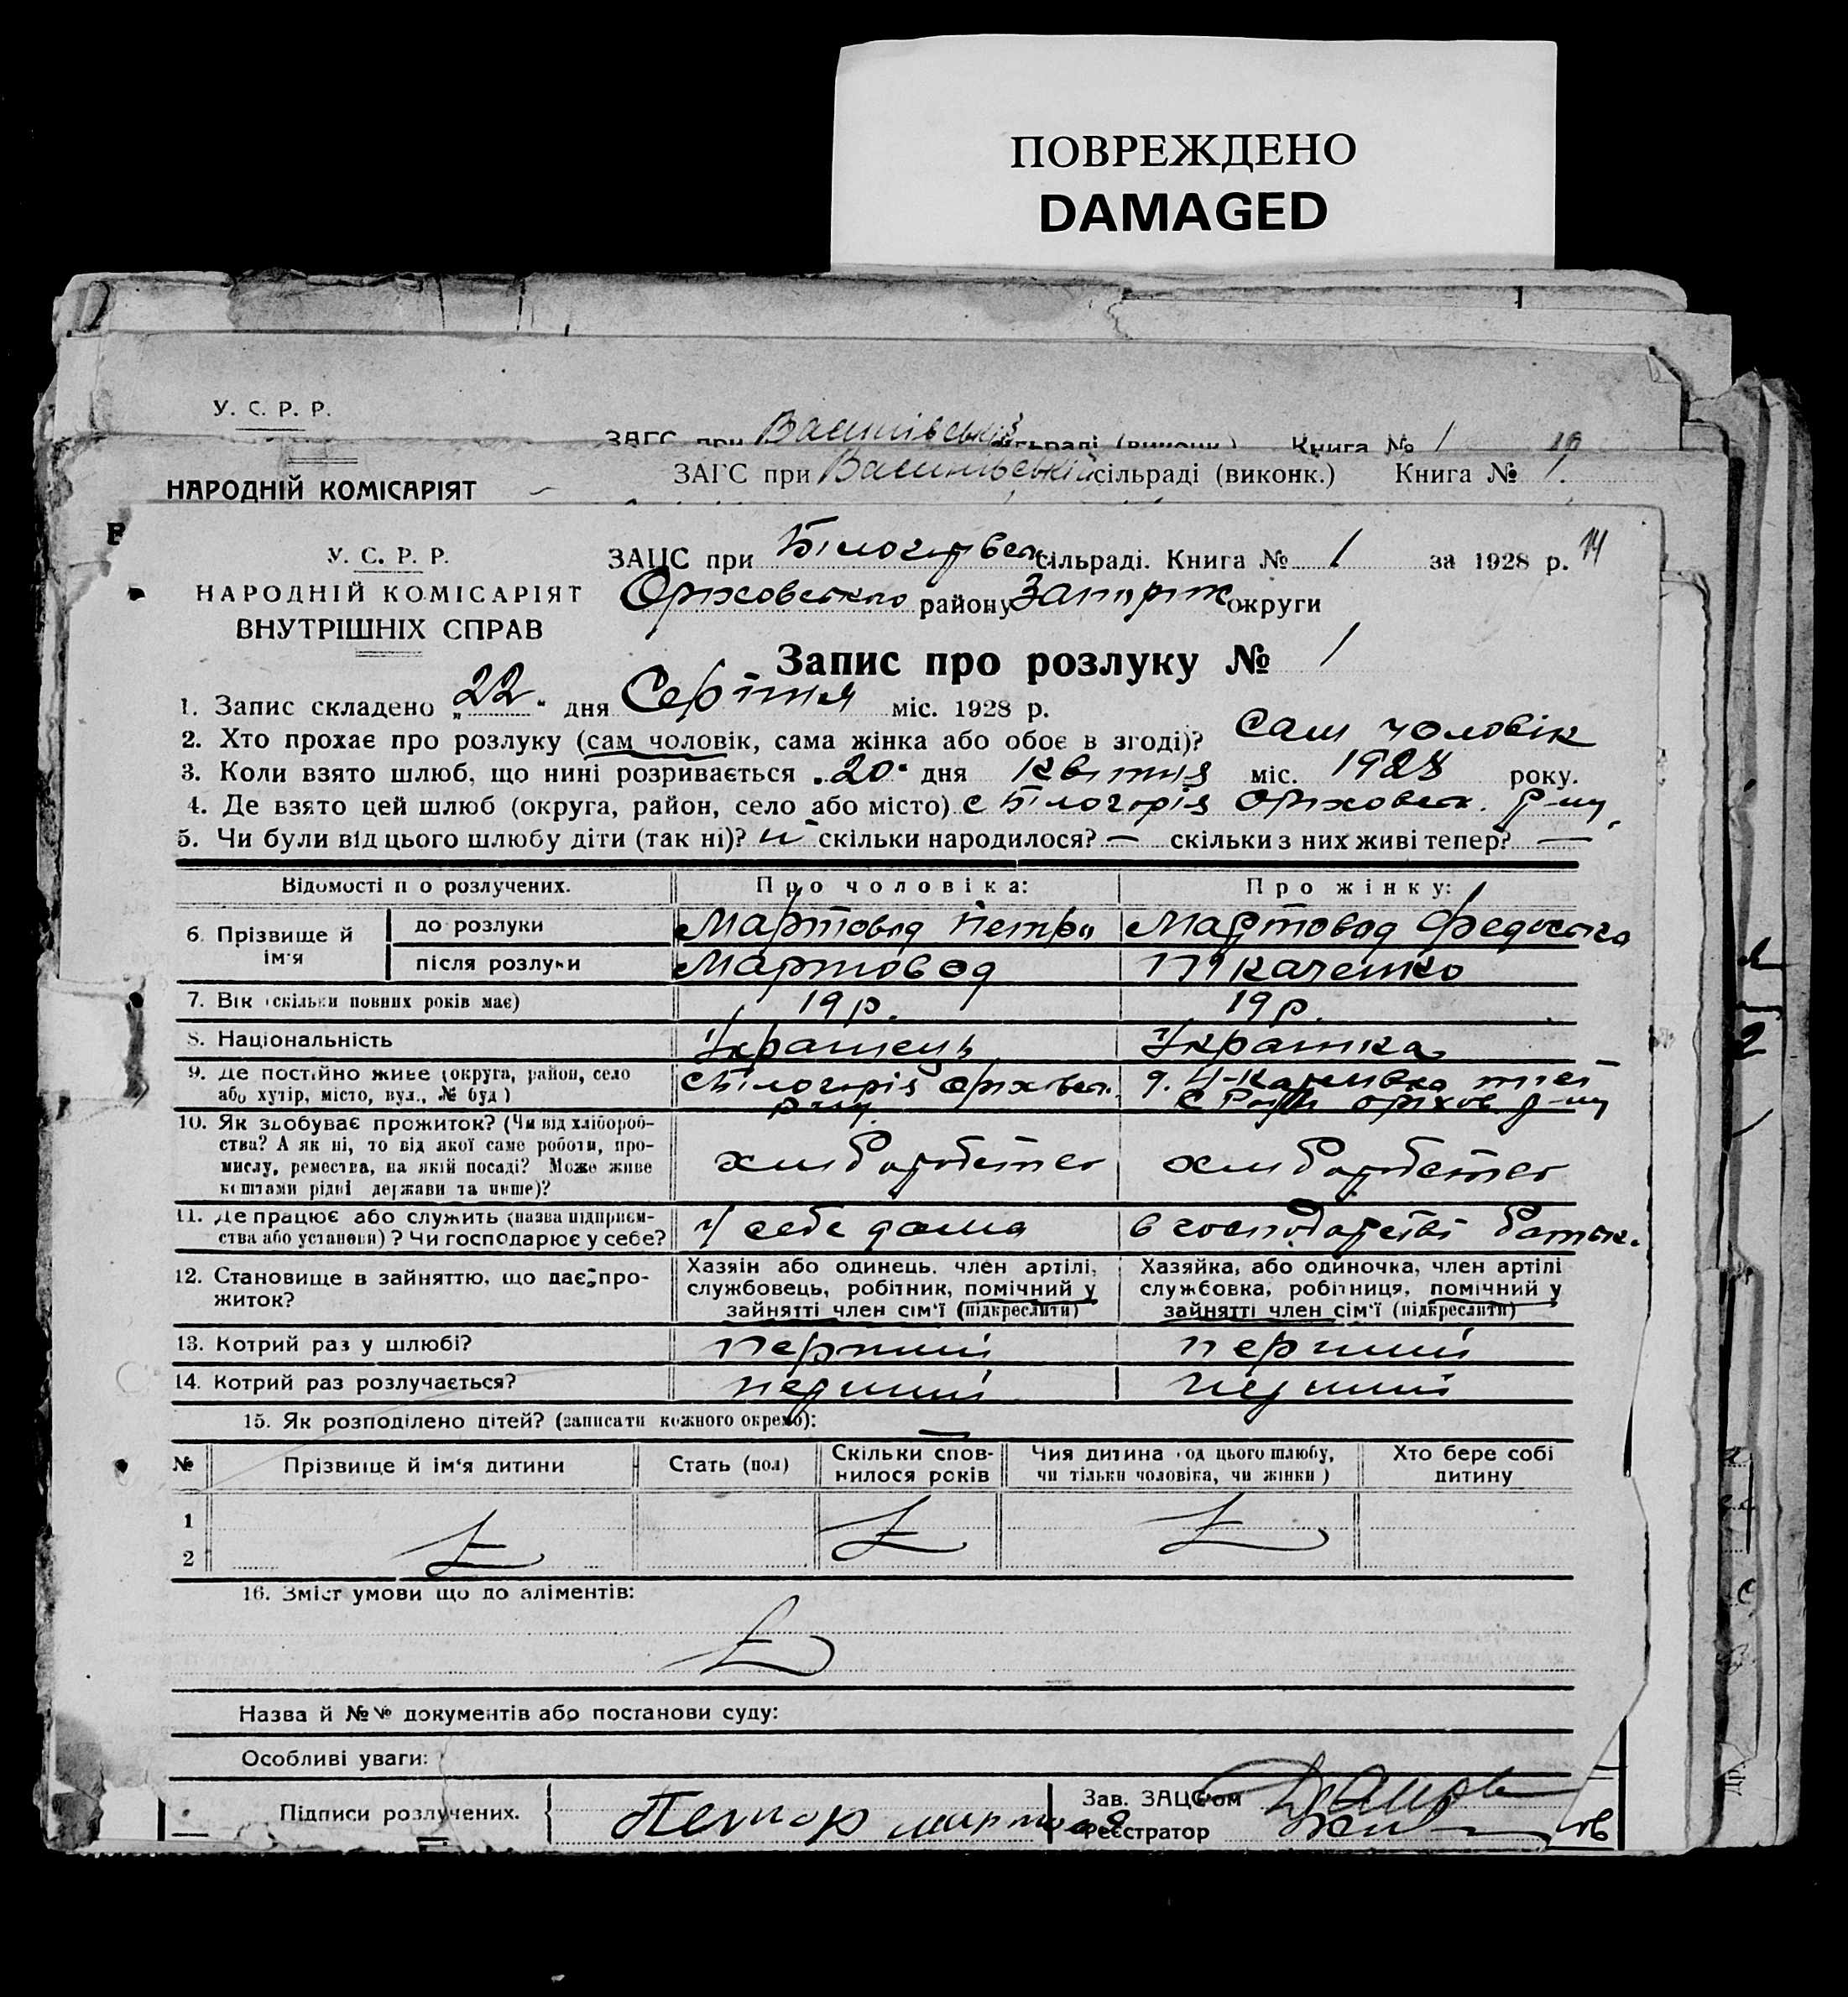 ПОВРЕЖДЕНО
DAMAGED
У. С. Р. Р.
ЗАГС при Василівській сільраді (виконк.) Книга № 1
НАРОДНІЙ КОМІСАРІЯТ
ЗАГС при Василівській сільраді (виконк.) Книга № 1.
У. С. Р. Р.
НАРОДНІЙ КОМІСАРІЯТ
ВНУТРІШНІХ СПРАВ
ЗАЦС при сільраді. Книга № 1 за 1928 р. 14
Оріховського району Запоріж округи
Запис про розлуку № 1
1. Запис складено „22“ дня Серпня міс. 1928 р.
2. Хто прохає про розлуку (сам чоловік, сама жінка або обоє в згоді)? Сам чоловік
3. Коли взято шлюб, що нині розривається „20“ дня Квітня міс. 1928 року.
4. Де взято цей шлюб (округа, район, село або місто) с Білогорія Оріховськ. р-ну
5. Чи були від цього шлюбу діти (так ні)? ні скільки народилося? — скільки з них живі тепер? —
Відомості п о розлучених.
Про чоловіка:
Про жінку:
6. Прізвище й ім'я
до розлуки
Мартовод Петро
Мартовод
після розлуки
Мартовод
Ткаченко
7. Вік (скільки повних років має)
19 р.
19 р.
8. Національність
Українець
Українка
9. Де постійно живе (округа, район, село
або хутір, місто, вул., № буд)
с Білогорія Оріховськ.
р-ну
Оріхов р-ну
10. Як здобуває прожиток? (Чи від хлібороб-
ства? А як ні, то від якої саме роботи, про-
мислу, ремества, на якій посаді? Може живе
коштами рідні держави та инше)?
хліборобство
хліборобство
11. Де працює або служить (назва підприєм-
ства або установи)? Чи господарює у себе?
у себе дома
в господарстві батьк.
12. Становище в зайняттю, що дає про-
житок?
Хазяін або одинець, член артілі,
службовець, робітник, помічний у
зайнятті член сім'ї (підкреслити)
Хазяйка, або одиночка, член артілі
службовка, робітниця, помічний у
зайнятті член сім'ї (підкреслити)
13. Котрий раз у шлюбі?
перший
перший
14. Котрий раз розлучається?
перший
перший
15. Як розподілено дітей? (записати кожного окремо): —
№
Прізвище й ім'я дитини
Стать (пол)
Скільки спов-
нилося років
Чия дитина (од цього шлюбу,
чи тільки чоловіка, чи жінки)
Хто бере собі
дитину
1
2
16. Зміст умови що до аліментів:
Назва й №№ документів або постанови суду:
Особливі уваги:
Підписи розлучених.
Петор мартовод
Зав. ЗАЦСом
Реєстратор